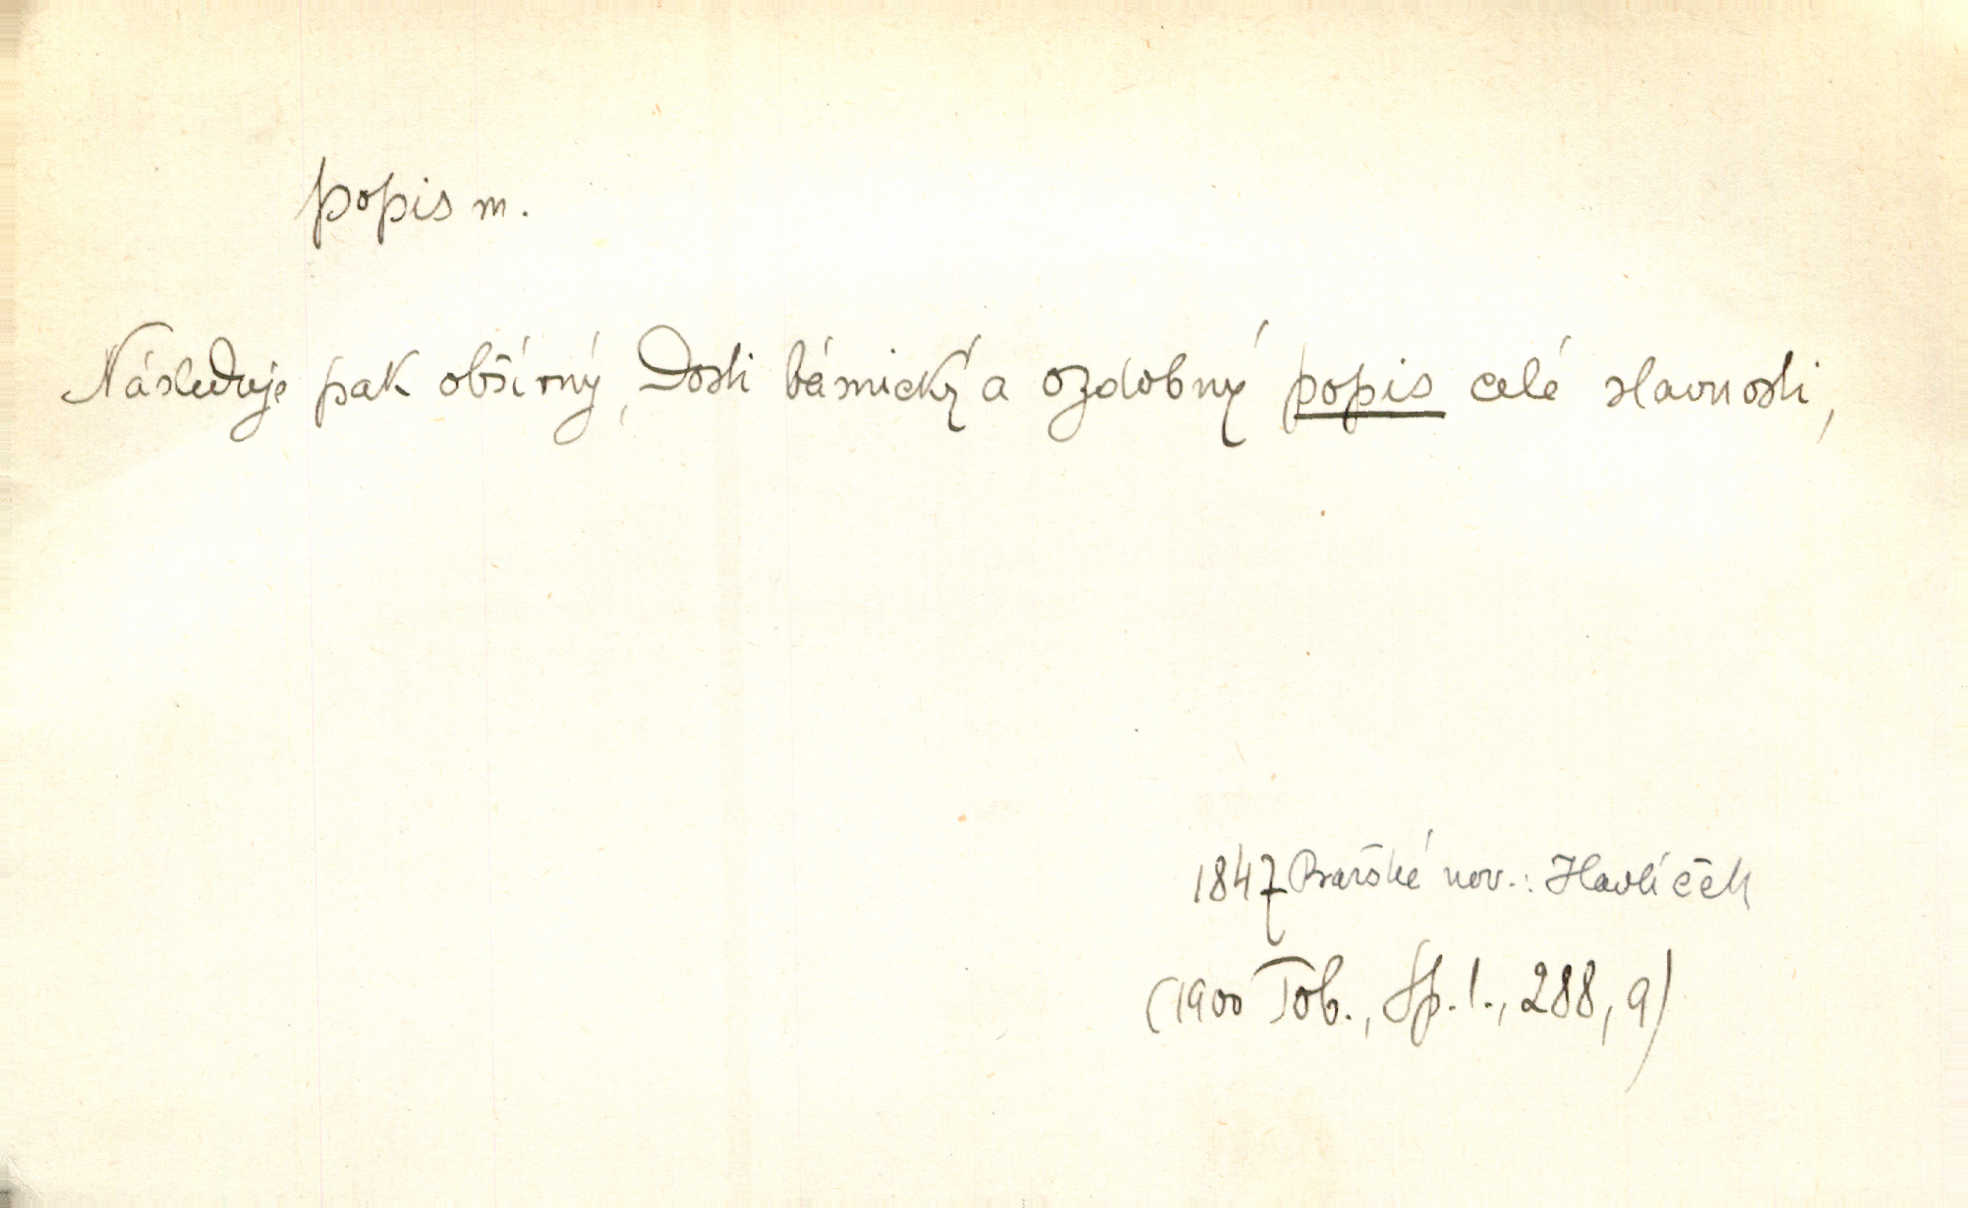 popis m.
Následuje pak obšírný, dosti básnický a ozdobný popis celé slavnosti,
1847 Pražské nov.: Havlíček
(1900 Tob., Sp. 1., 288, 9)